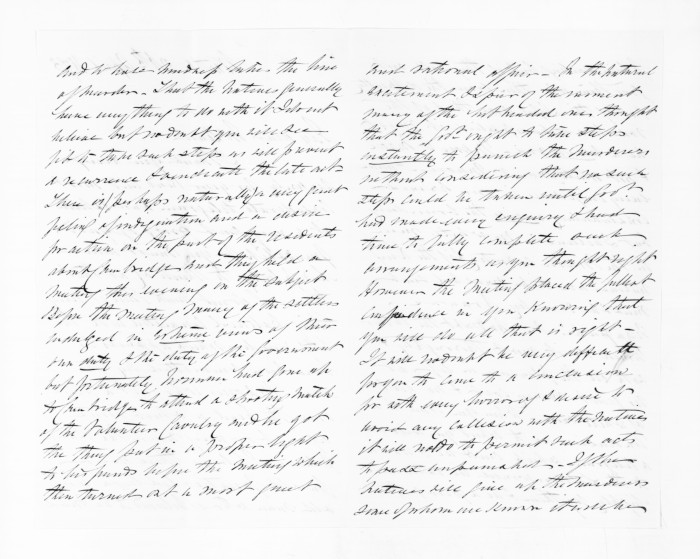 and to have madness takes the line
of murder – That the Natives generally
have anything to do with it I do not
believe but no doubt you will see
fit to take such steps as will prevent
a recurrence & vindicate the late acts
There is, perhaps naturally, a very great
feeling of indignation and a desire
for action on the part of the residents
about Cambridge and they held a
meeting this evening on the subject
Before the meeting many of the settlers
indulged in extreme views of their
own duty & the duty of the Government
but fortunately had gone up
to Cambridge to attend a shooting match
of the Volunteer Cavalry and he got
the thing put in a proper light
to his friends before the Meeting which
then turned out a most quiet
and rational affair – In the natural
excitement & of the moment
many of the hot headed ones thought
that the Govt ought to take steps
instantly to punish the Murderers
without considering that no such
steps could be taken until Govt
had made every enquiry & had
time to fully complete such
arrangements as you thought right
However the Meeting placed the fullest
confidence in you knowing that
you will do all that is right –
It will no doubt be very difficult
for you to come to a conclusion
for with every to
avoid any collision with the Natives
it will not do to permit such acts
to pass unpunished – If the
Natives will give up the Murderers
some of whom are known it will be